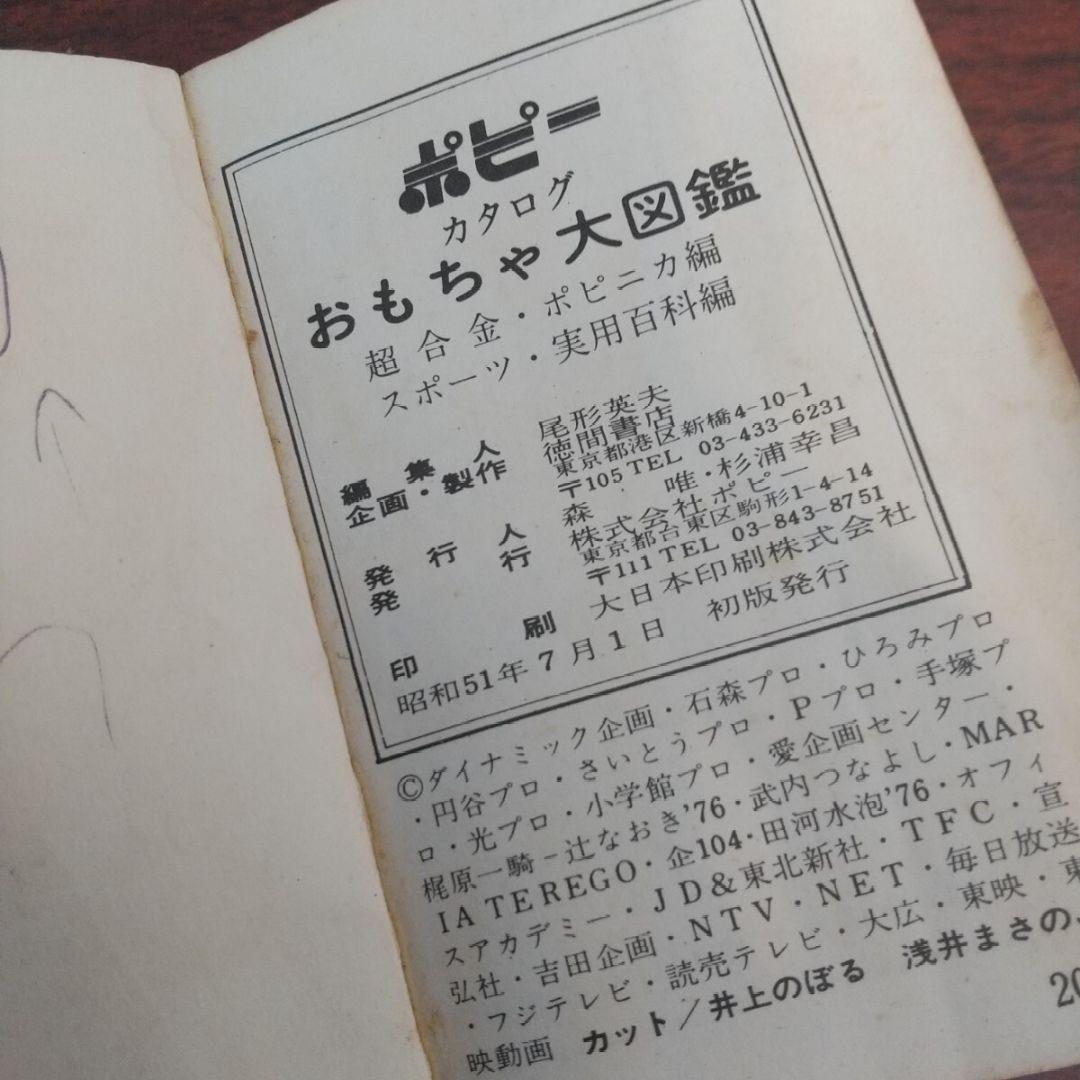 ポピー
カタログ
おもちゃ大図鑑
超合金・ポピニカ編
スポーツ・実用百科編
編集人 尾形英夫
企画・製作 徳間書店
東京都港区新橋4-10-1
〒105 TEL 03-433-6231
発行人 森 唯・杉浦幸昌
発行 株式会社ポピー
東京都台東区駒形1-4-14
〒111 TEL 03-843-8751
印刷 大日本印刷株式会社
昭和51年7月1日 初版発行
©ダイナミック企画・石森プロ・ひろみプロ
・円谷プロ・さいとうプロ・Pプロ・手塚プ
ロ・光プロ・小学館プロ・愛企画センター・
梶原一騎-辻なおき'76・武内つなよし・MAR
IA TEREGO・企104・田河水泡'76・オフィ
スアカデミー・JD&東北新社・TFC・宣
弘社・吉田企画・NTV・NET・毎日放送
・フジテレビ・読売テレビ・大広・東映・東
映動画 カット/井上のぼる 浅井まさの